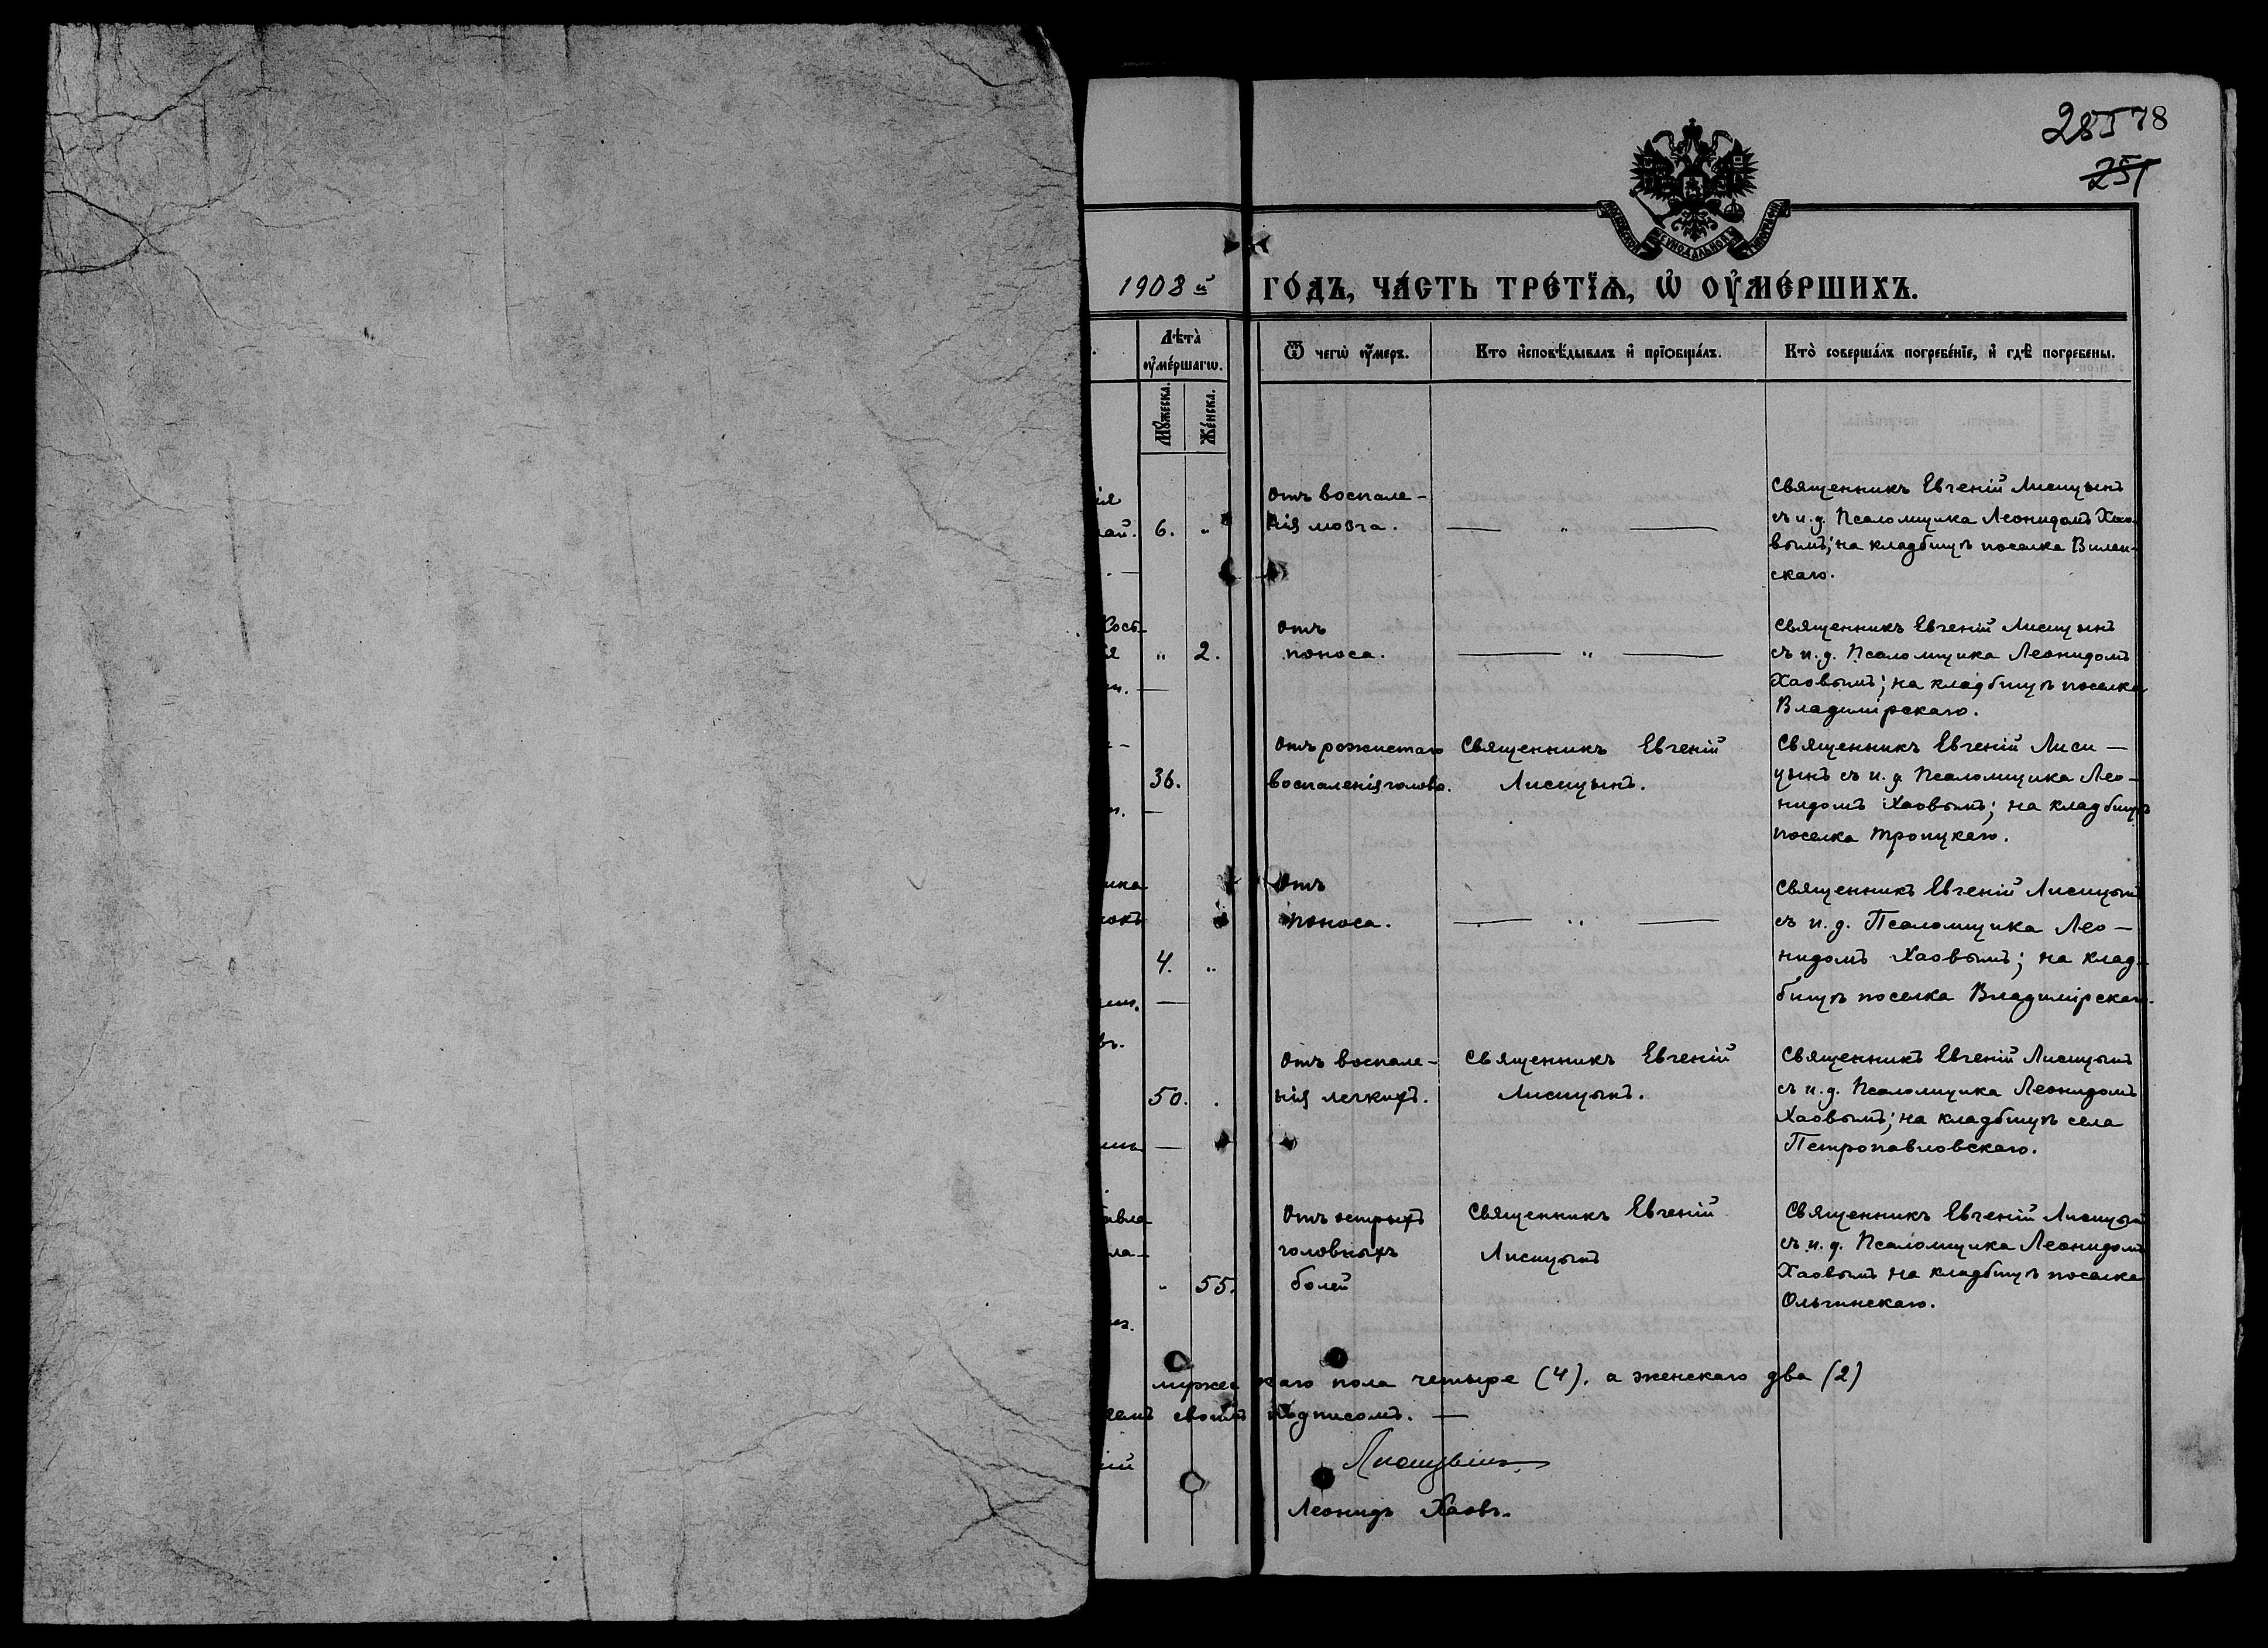 285 78
251
СѴНОДАЛЬНОЙ
1908 й ГОДЪ, ЧАСТЬ ТРЕТІѦ, Ѡ ОУМЕРШИХЪ.
Лѣта оумершагѡ.
Мꙋжеска.
Женска.
Ѿ чегѡ оумеръ.
Кто исповѣдывалъ и прїобщалъ.
Кто совершалъ погребенїе, и гдѣ погребены.
6. "
Отъ воспале-
нія мозга.
— " —
Священникъ Евгеній Лисицынъ
съ и.д. Псаломщика Леонидомъ Хао-
вымъ; на кладбищѣ поселка Вилен-
скаго.
" 2.
Отъ
поноса.
— " —
Священникъ Евгеній Лисицынъ
съ и.д. Псаломщика Леонидомъ
Хаовымъ; на кладбищѣ поселка
Владимірскаго.
36.
Отъ рожистаго
воспаленія головы.
Священникъ Евгеній
Лисицынъ.
Священникъ Евгеній Лиси-
цынъ съ и.д. Псаломщика Лео-
нидомъ Хаовымъ; на кладбищѣ
поселка Троицкаго.
4. "
Отъ
поноса.
— " —
Священникъ Евгеній Лисицынъ
съ и.д. Псаломщика Лео-
нидомъ Хаовымъ; на клад-
бищѣ поселка Владимірскаго.
50.
Отъ воспале-
нія легкихъ.
Священникъ Евгеній
Лисицынъ.
Священникъ Евгеній Лисицынъ
съ и.д. Псаломщика Леонидомъ
Хаовымъ; на кладбищѣ села
Петропавловскаго.
" 55.
Отъ острыхъ
головныхъ
болей
Священникъ Евгеній
Лисицынъ
Священникъ Евгеній Лисицынъ
съ и.д. Псаломщика Леонидомъ
Хаовымъ на кладбищѣ поселка
Ольгинскаго.
мужескаго пола четыре (4), а женскаго два (2)
своимъ подписомъ. —
Лисицынъ
Леонидъ Хаовъ.